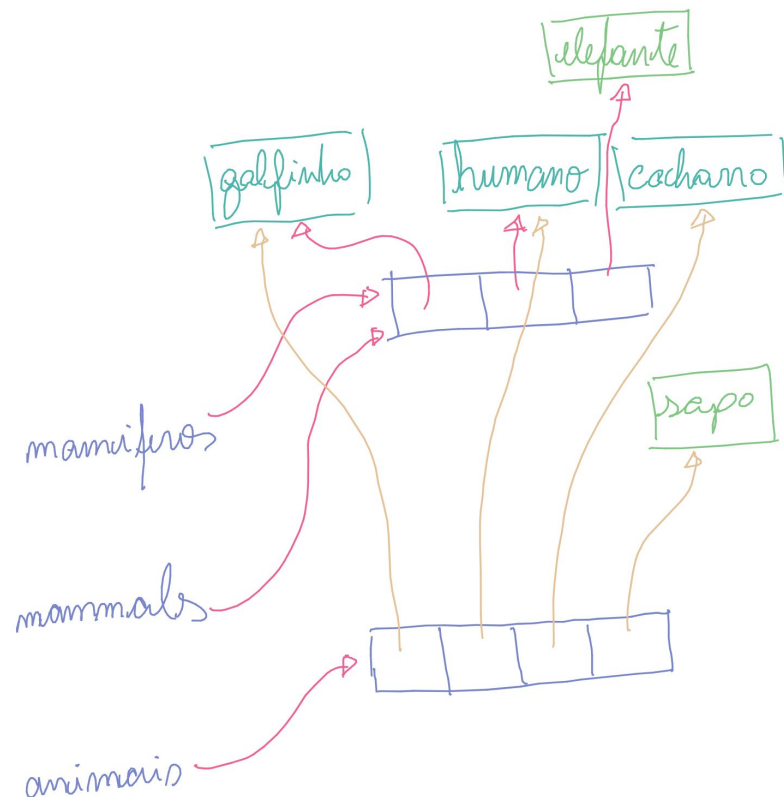 elefante
golfinho
humano
cachorro
sapo
mamíferos
mammals
animais